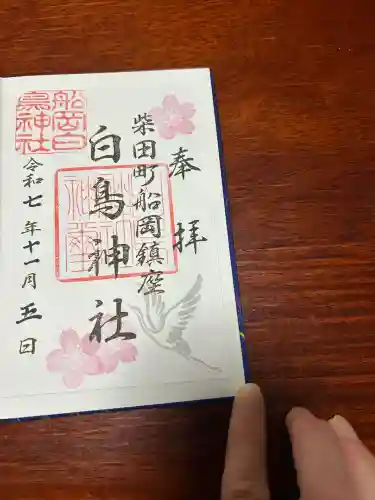 奉拝
柴田町船岡鎮座
白鳥神社
船岡白鳥神社
令和七年十一月五日